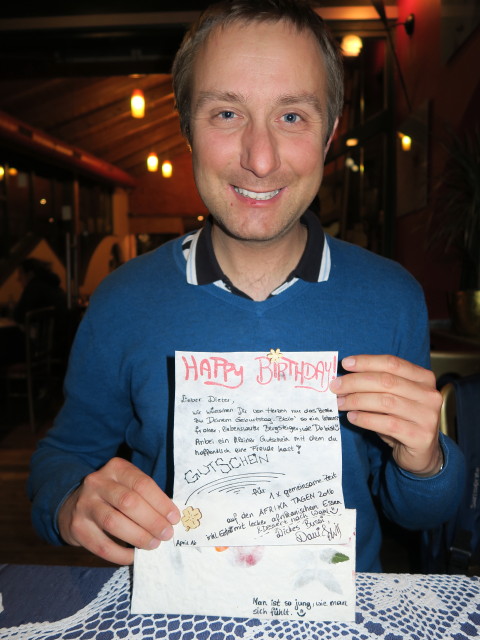 HAPPY BIRTHDAY!
Lieber Dieter,
wir wünschen Dir von Herzen nur das Beste
zu Deinem Geburtstag. Bleib' so ein
froher, Bergsteiger, wie Du bist!
Anbei ein kleiner Gutschein mit dem du
hoffentlich eine Freude hast!
GUTSCHEIN
für 1x gemeinsame Zeit
auf den AFRIKA TAGEN 2016
inkl. Eintritt mit lecker afrikanischem Essen
& Dessert nach Wahl
Dickes Bussi
April 16
Man ist so jung, wie man
sich fühlt.